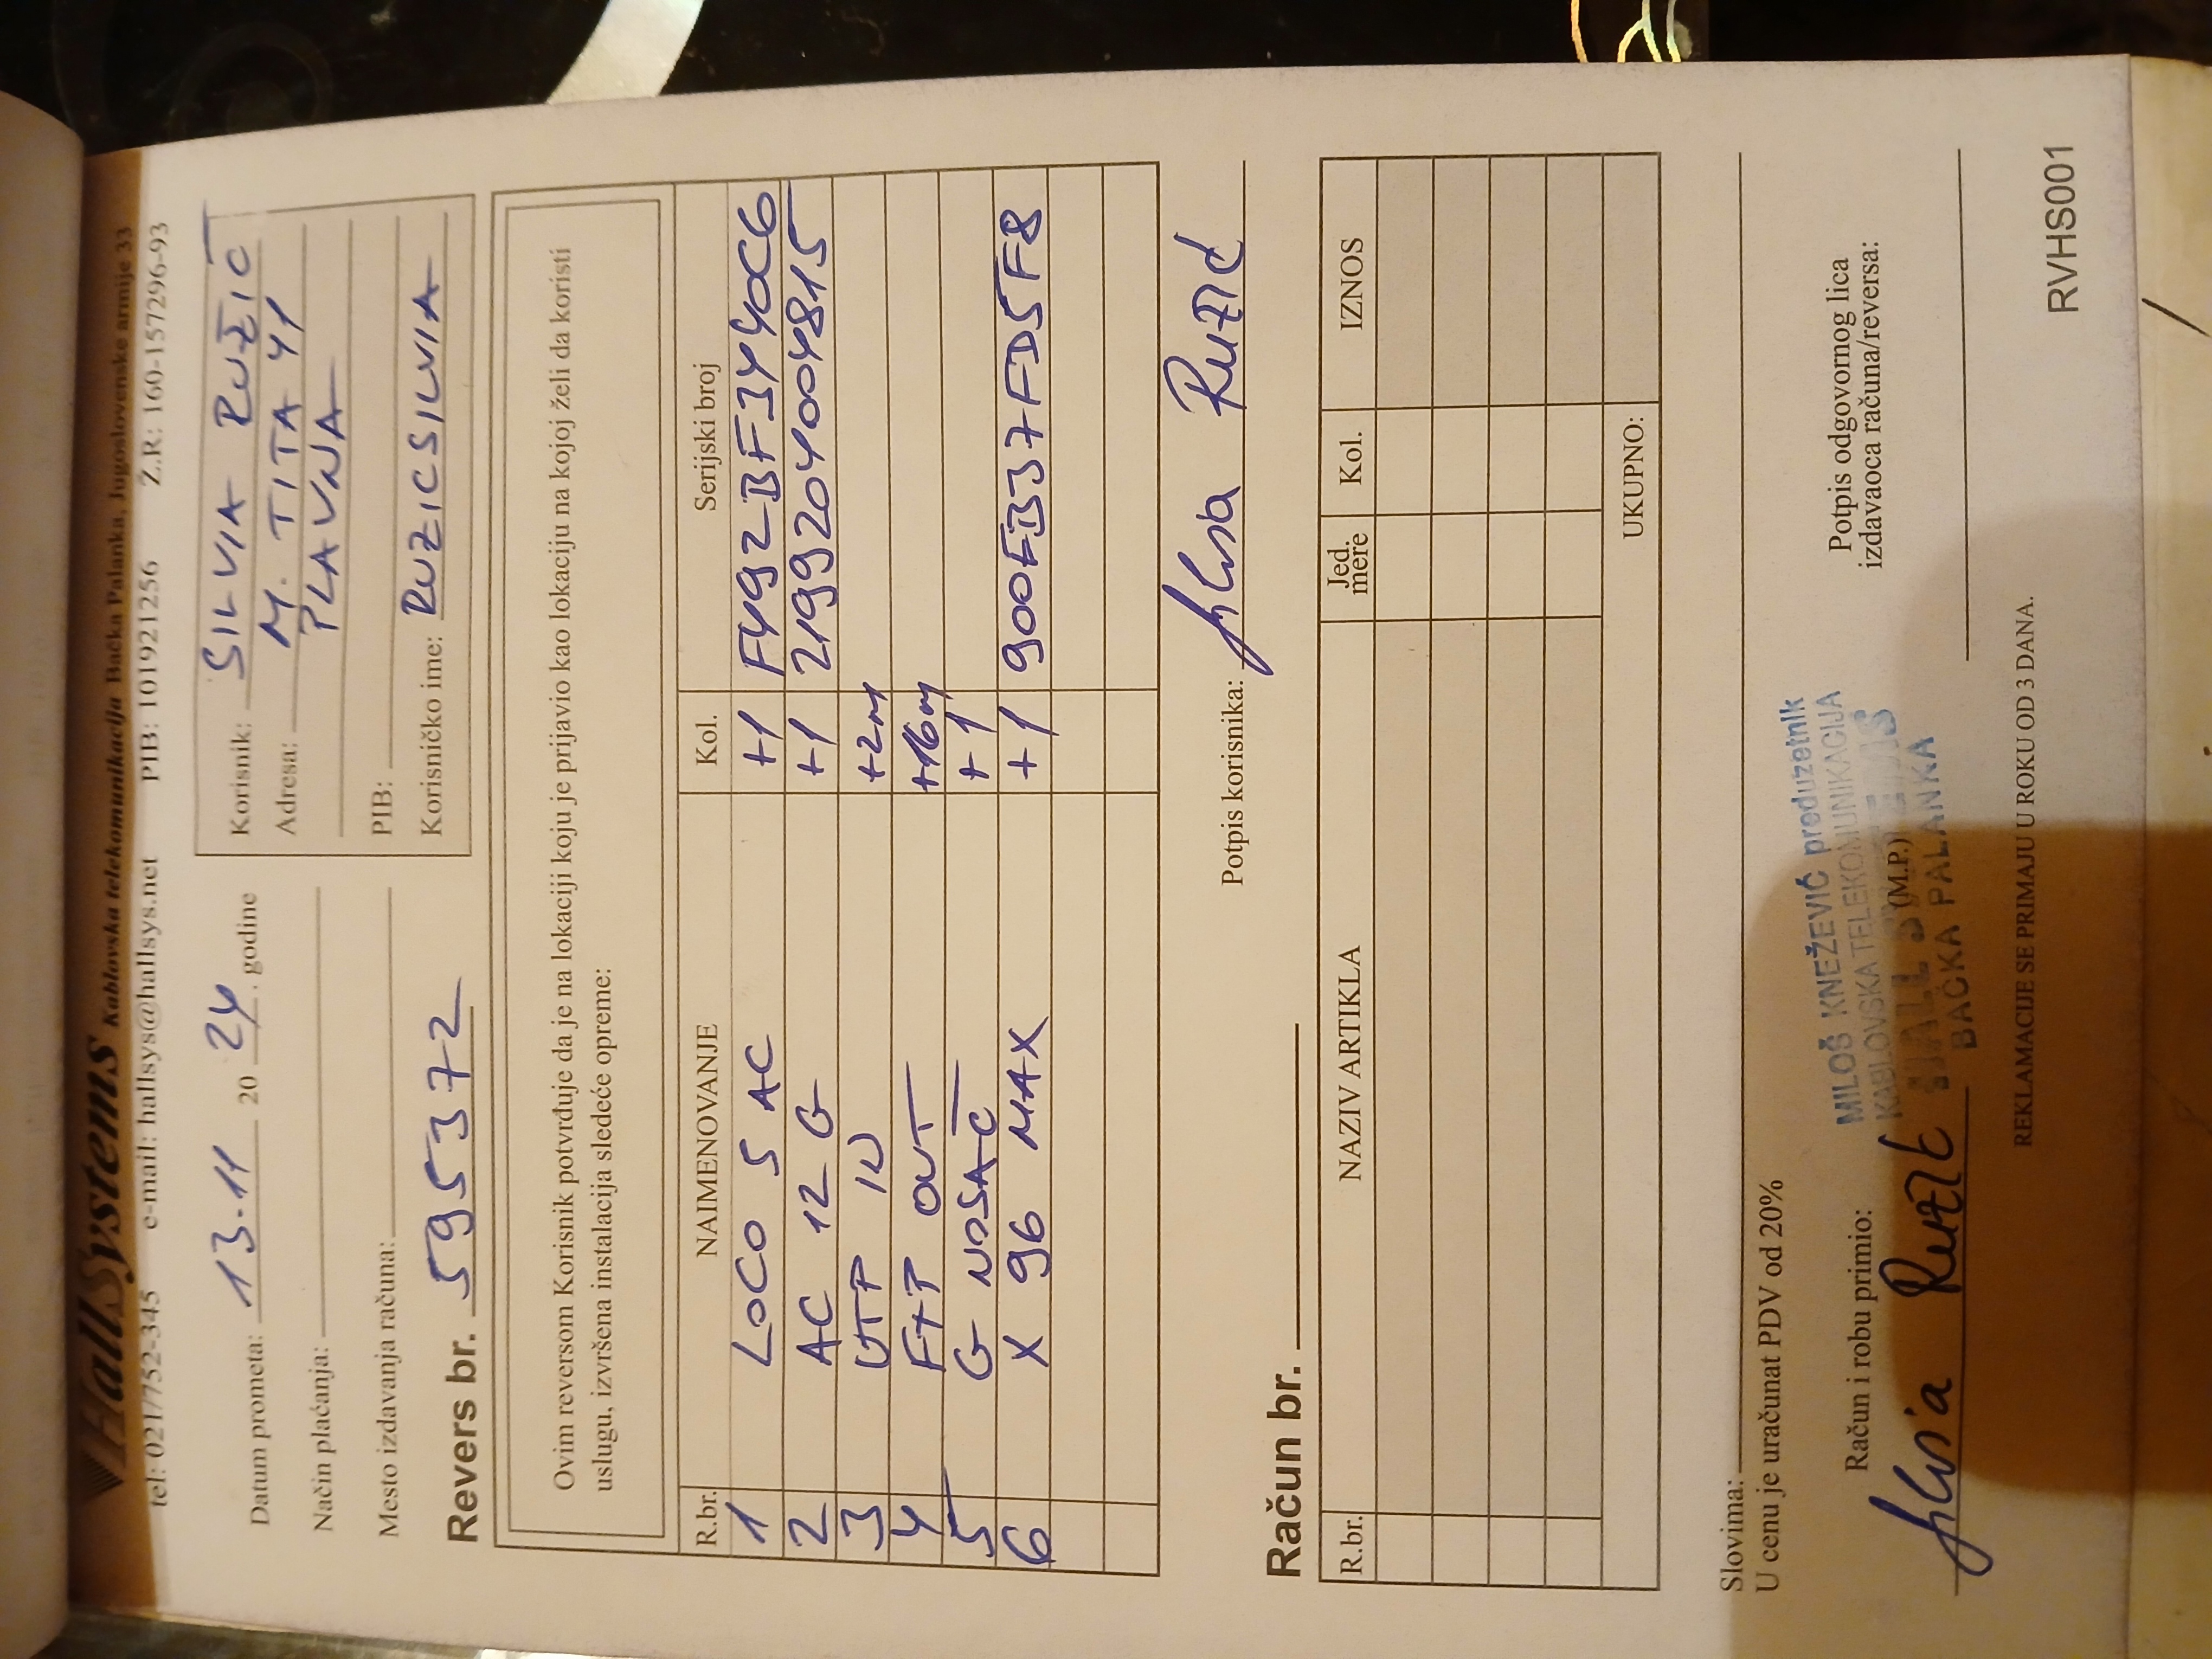 HallSystems Kablovska telekomunikacija Bačka Palanka, Jugoslovenske armije 33
tel: 021/752-345 e-mail: hallsys@hallsys.net PIB: 101921256 Ž.R: 160-157296-93
Datum prometa: 13.11 20 24. godine
Način plaćanja:
Mesto izdavanja računa:
Revers br. 595372
Korisnik: SILVIA RUŽIĆ
Adresa: M. TITA 41
PLAVNA
PIB:
Korisničko ime: RUZICSILVIA
Ovim reversom Korisnik potvrđuje da je na lokaciji koju je prijavio kao lokaciju na kojoj želi da koristi
uslugu, izvršena instalacija sledeće opreme:
R.br. NAIMENOVANJE Kol. Serijski broj
1 LOCO 5 AC +1 F492BF3440C6
2 AC 12 G +1 2199204004815
3 UTP IN +2m
4 FTP OUT +16m
5 G NOSAČ +1
6 X 96 MAX +1 900EB37FD5F8
Potpis korisnika: Silvia Ružić
Račun br.
R.br. NAZIV ARTIKLA Jed. mere Kol. IZNOS
UKUPNO:
Slovima:
U cenu je uračunat PDV od 20%
Račun i robu primio:
Silvia Ružić
MILOŠ KNEŽEVIĆ preduzetnik
KABLOVSKA TELEKOMUNIKACIJA
HALL SYSTEMS
(M.P.)
BAČKA PALANKA
Potpis odgovornog lica
izdavaoca računa/reversa:
REKLAMACIJE SE PRIMAJU U ROKU OD 3 DANA.
RVHS001